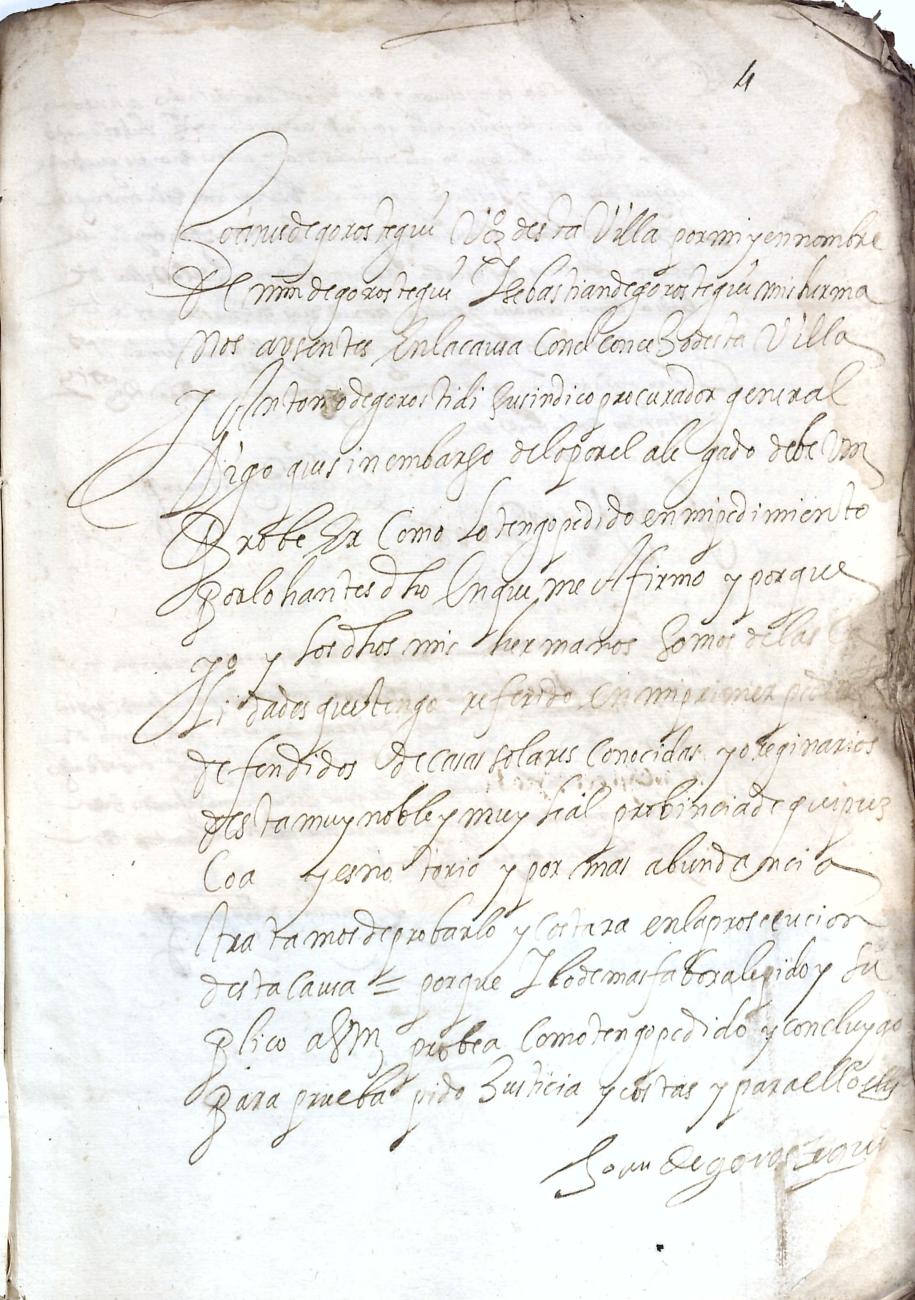 4
Joanes de gorostegui Vz̊ desta Villa por mi y en nombre
de mīn de gorostegui J sebastian de gorostegui mis herma
nos ausentes En la causa Con el conceJo desta Villa
J Antonio de gorostidi su sindico procurador general
Digo que sin embargo de lo por el alegado debe Vm
Probeer Como lo tengo pedido en mi pedimiento
Por lo hantes dho En que me Afirmo y porque
yo y los dhos mis hermanos somos de las
lidades que tengo referido en mi primer
defendidos de casas solares conocidas y oreginarios
desta muy noble y muy leal probincia de guipuz
Coa y es notorio y por mas abundancia
tratamos de probarlo y Costara en la prosecucion
desta Causa = porque J lo demas faborale pido y su
Plico a Vm probea Como tengo pedido y concluyo
Para prueba pido Justicia y costas y para ello
Joan de gorostegui